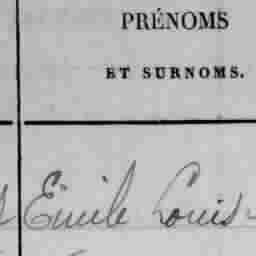 PRÉNOMS
ET SURNOMS.
Emile Louis